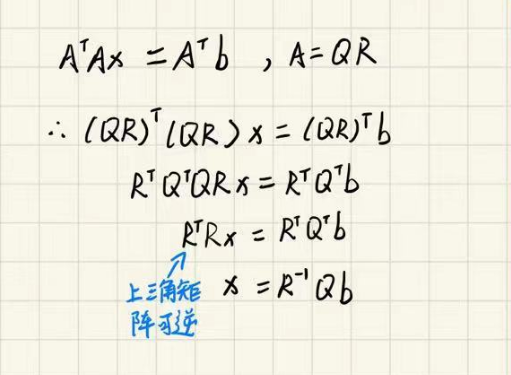 AᵀAx = Aᵀb , A = QR
∴ (QR)ᵀ(QR)x = (QR)ᵀb
RᵀQᵀQRx = RᵀQᵀb
RᵀRx = RᵀQᵀb
x = R⁻¹Qb
上三角矩
阵可逆